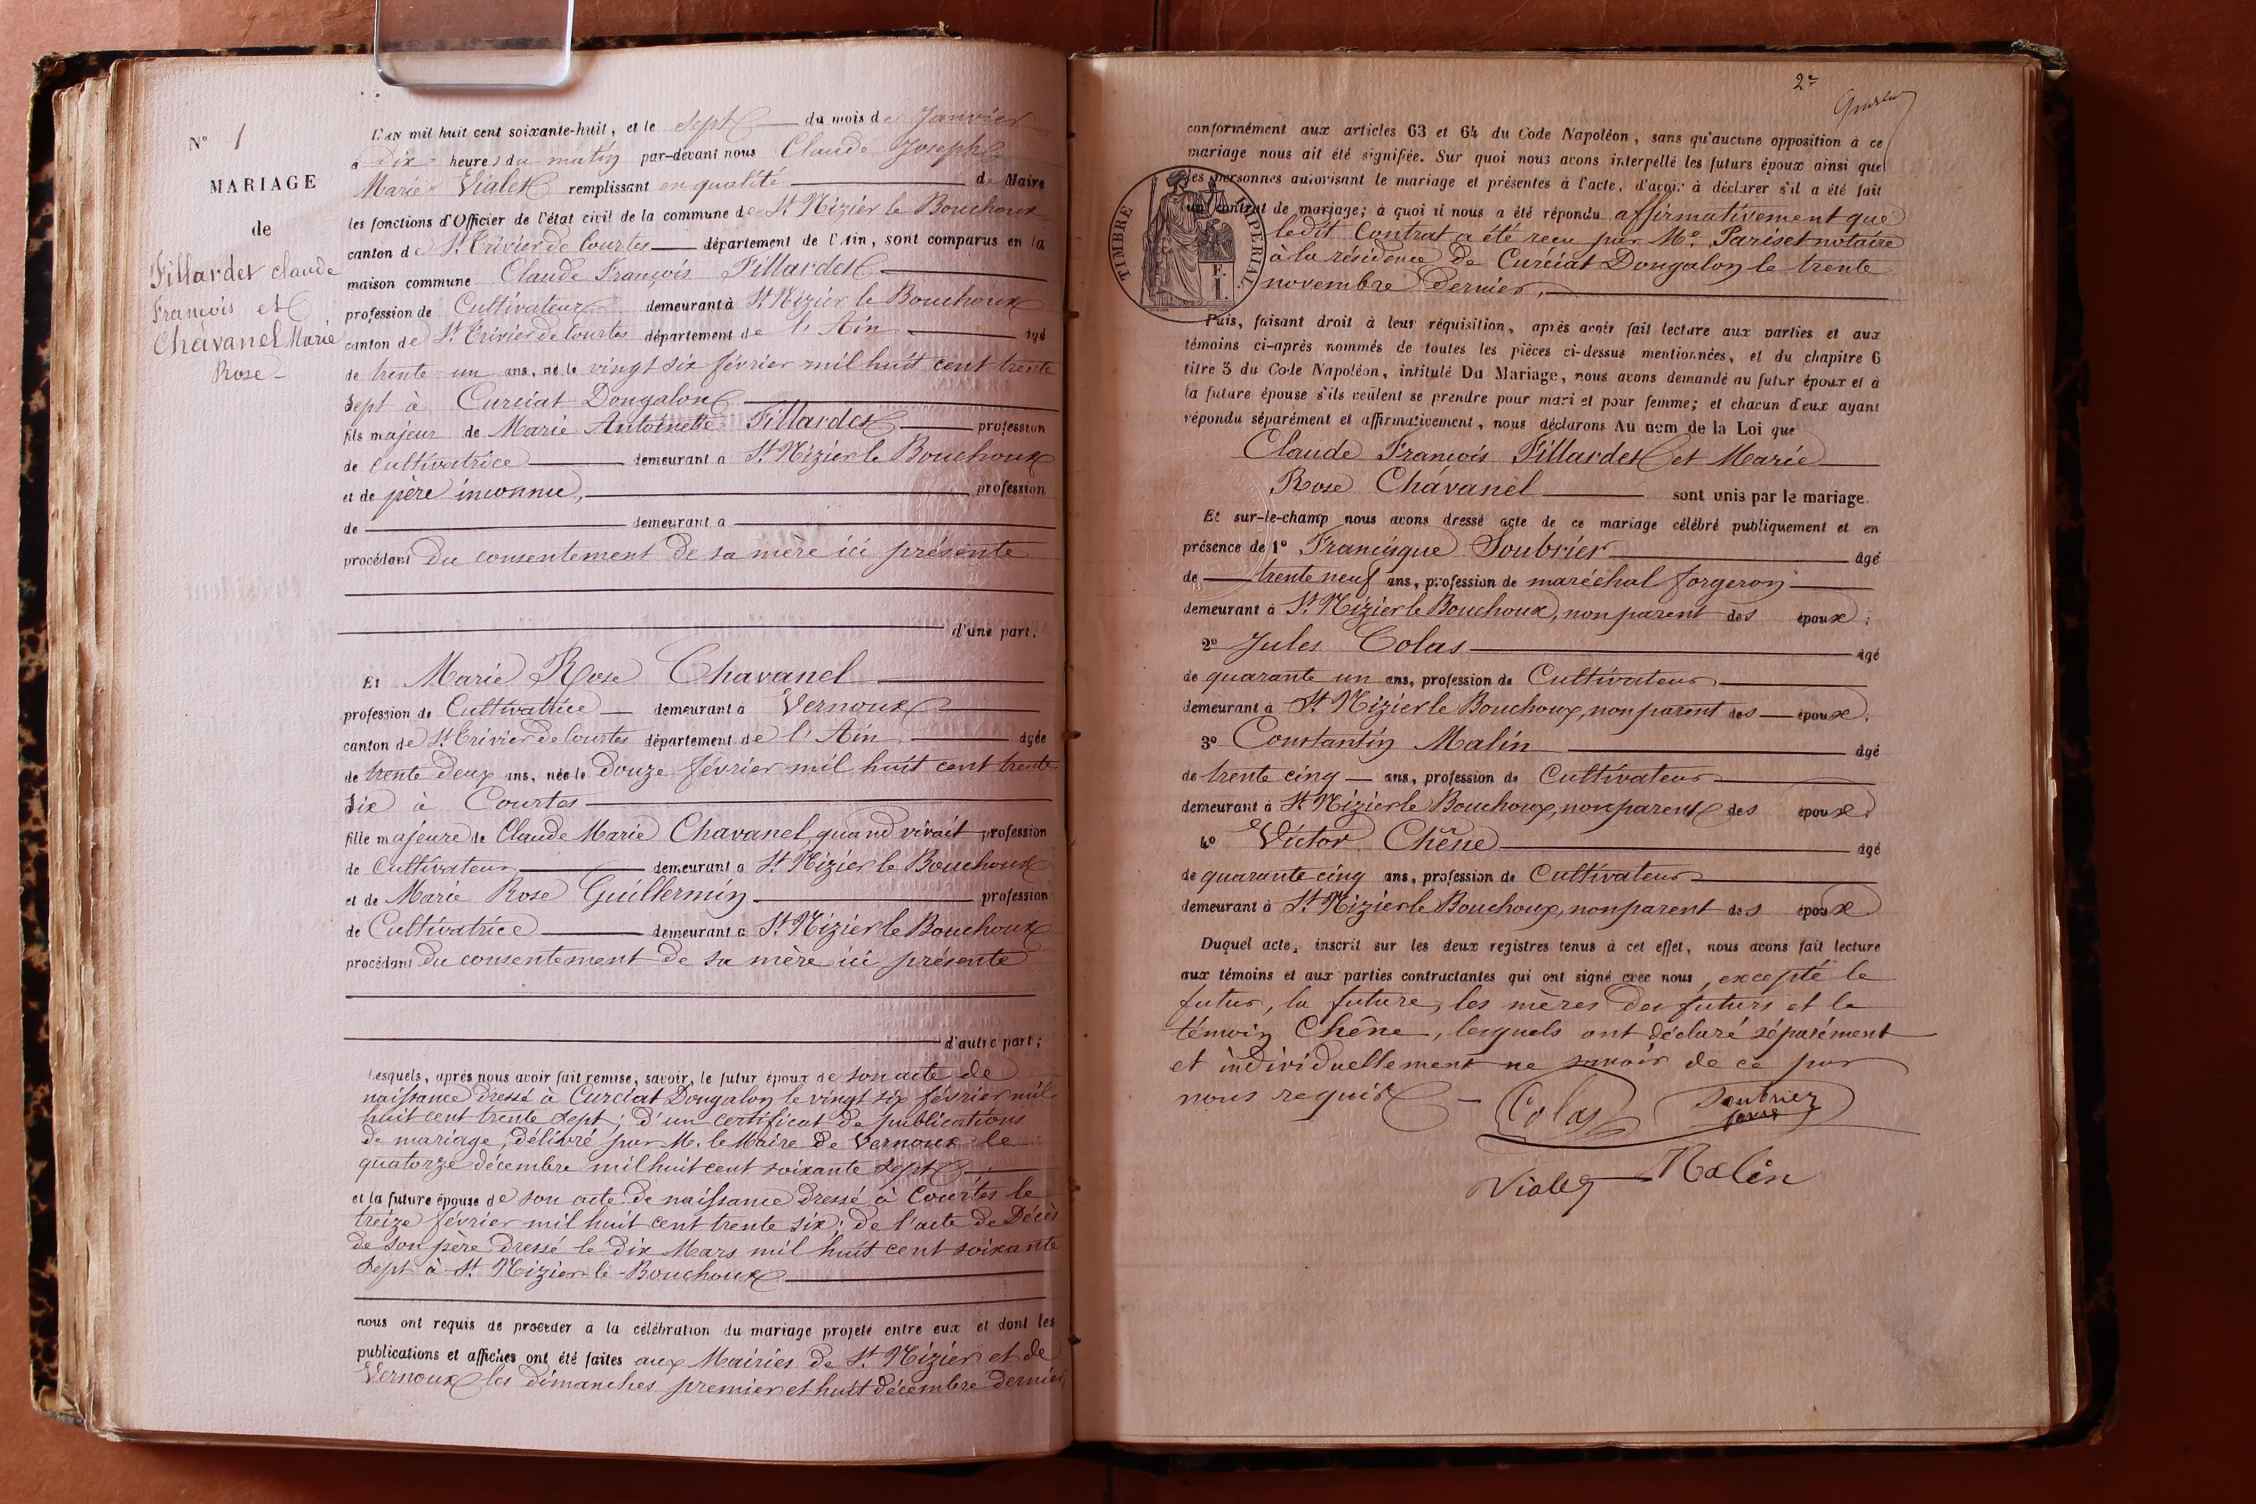 N° 1
MARIAGE
de
Fillardet Claude
François et
Chavanel Marie
Rose
L'an mil huit cent soixante-huit, et le sept du mois de Janvier
à dix heures du matin par-devant nous Claude Joseph
Marie Vialet remplissant en qualité de Maire
les fonctions d'Officier de l'état civil de la commune de St Nizier le Bouchoux
canton de St Trivier de Courtes département de l'Ain, sont comparus en la
maison commune Claude François Fillardet
profession de Cultivateur demeurant à St Nizier le Bouchoux
canton de St Trivier de Courtes département de l'Ain âgé
de trente un ans, né le vingt six février mil huit cent trente
sept à Curciat Dongalon
fils majeur de Marie Antoinette Fillardet profession
de cultivatrice demeurant à St Nizier le Bouchoux
et de père inconnu, profession
de demeurant à
procédant du consentement de sa mère ici présente
d'une part.
Et Marie Rose Chavanel
profession de Cultivatrice demeurant à Vernoux
canton de St Trivier de Courtes département de l'Ain âgée
de trente deux ans, née le douze février mil huit cent trente
six à Courtes
fille majeure de Claude Marie Chavanel, quand vivait profession
de Cultivateur demeurant à St Nizier le Bouchoux
et de Marie Rose Guillermin profession
de Cultivatrice demeurant à St Nizier le Bouchoux
procédant du consentement de sa mère ici présente
d'autre part;
Lesquels, après nous avoir fait remise, savoir, le futur époux de son acte de
naissance dressé à Curciat Dongalon le vingt six février mil
huit cent trente sept; d'un certificat de publications
de mariage, délivré par M. le Maire de Vernoux le
quatorze décembre mil huit cent soixante sept
et la future épouse de son acte de naissance dressé à Courtes le
treize février mil huit cent trente six; de l'acte de Décès
de son père dressé le dix Mars mil huit cent soixante
sept à St Nizier le Bouchoux
nous ont requis de procéder à la célébration du mariage projeté entre eux et dont les
publications et affiches ont été faites aux Mairies de St Nizier et de
Vernoux les dimanches premier et huit décembre dernier
2e
conformément aux articles 63 et 64 du Code Napoléon, sans qu'aucune opposition à ce
mariage nous ait été signifiée. Sur quoi nous avons interpellé les futurs époux ainsi que
les personnes autorisant le mariage et présentes à l'acte, d'avoir à déclarer s'il a été fait
un contrat de mariage; à quoi il nous a été répondu affirmativement que
ledit Contrat a été reçu par Me Pariset notaire
à la résidence de Curciat Dongalon le trente
novembre dernier,
TIMBRE IMPERIAL
F.
I.
Puis, faisant droit à leur réquisition, après avoir fait lecture aux parties et aux
témoins ci-après nommés de toutes les pièces ci-dessus mentionnées, et du chapitre 6
titre 5 du Code Napoléon, intitulé Du Mariage, nous avons demandé au futur époux et à
la future épouse s'ils veulent se prendre pour mari et pour femme; et chacun d'eux ayant
répondu séparément et affirmativement, nous déclarons Au nom de la Loi que
Claude François Fillardet et Marie
Rose Chavanel sont unis par le mariage.
Et sur-le-champ nous avons dressé acte de ce mariage célébré publiquement et en
présence de 1° Francisque Soubrier âgé
de trente neuf ans, profession de maréchal forgeron
demeurant à St Nizier le Bouchoux, non parent des époux;
2° Jules Colas âgé
de quarante un ans, profession de Cultivateur
demeurant à St Nizier le Bouchoux, non parent des époux;
3° Constantin Malin âgé
de trente cinq ans, profession de Cultivateur
demeurant à St Nizier le Bouchoux, non parent des époux;
4° Victor Chêne âgé
de quarante cinq ans, profession de Cultivateur
demeurant à St Nizier le Bouchoux, non parent des époux
Duquel acte, inscrit sur les deux registres tenus à cet effet, nous avons fait lecture
aux témoins et aux parties contractantes qui ont signé avec nous, excepté le
futur, la future, les mères des futurs et le
témoin Chêne, lesquels ont déclaré séparément
et individuellement ne savoir de ce par
nous requis
Colas Soubrier
Vialet Malin